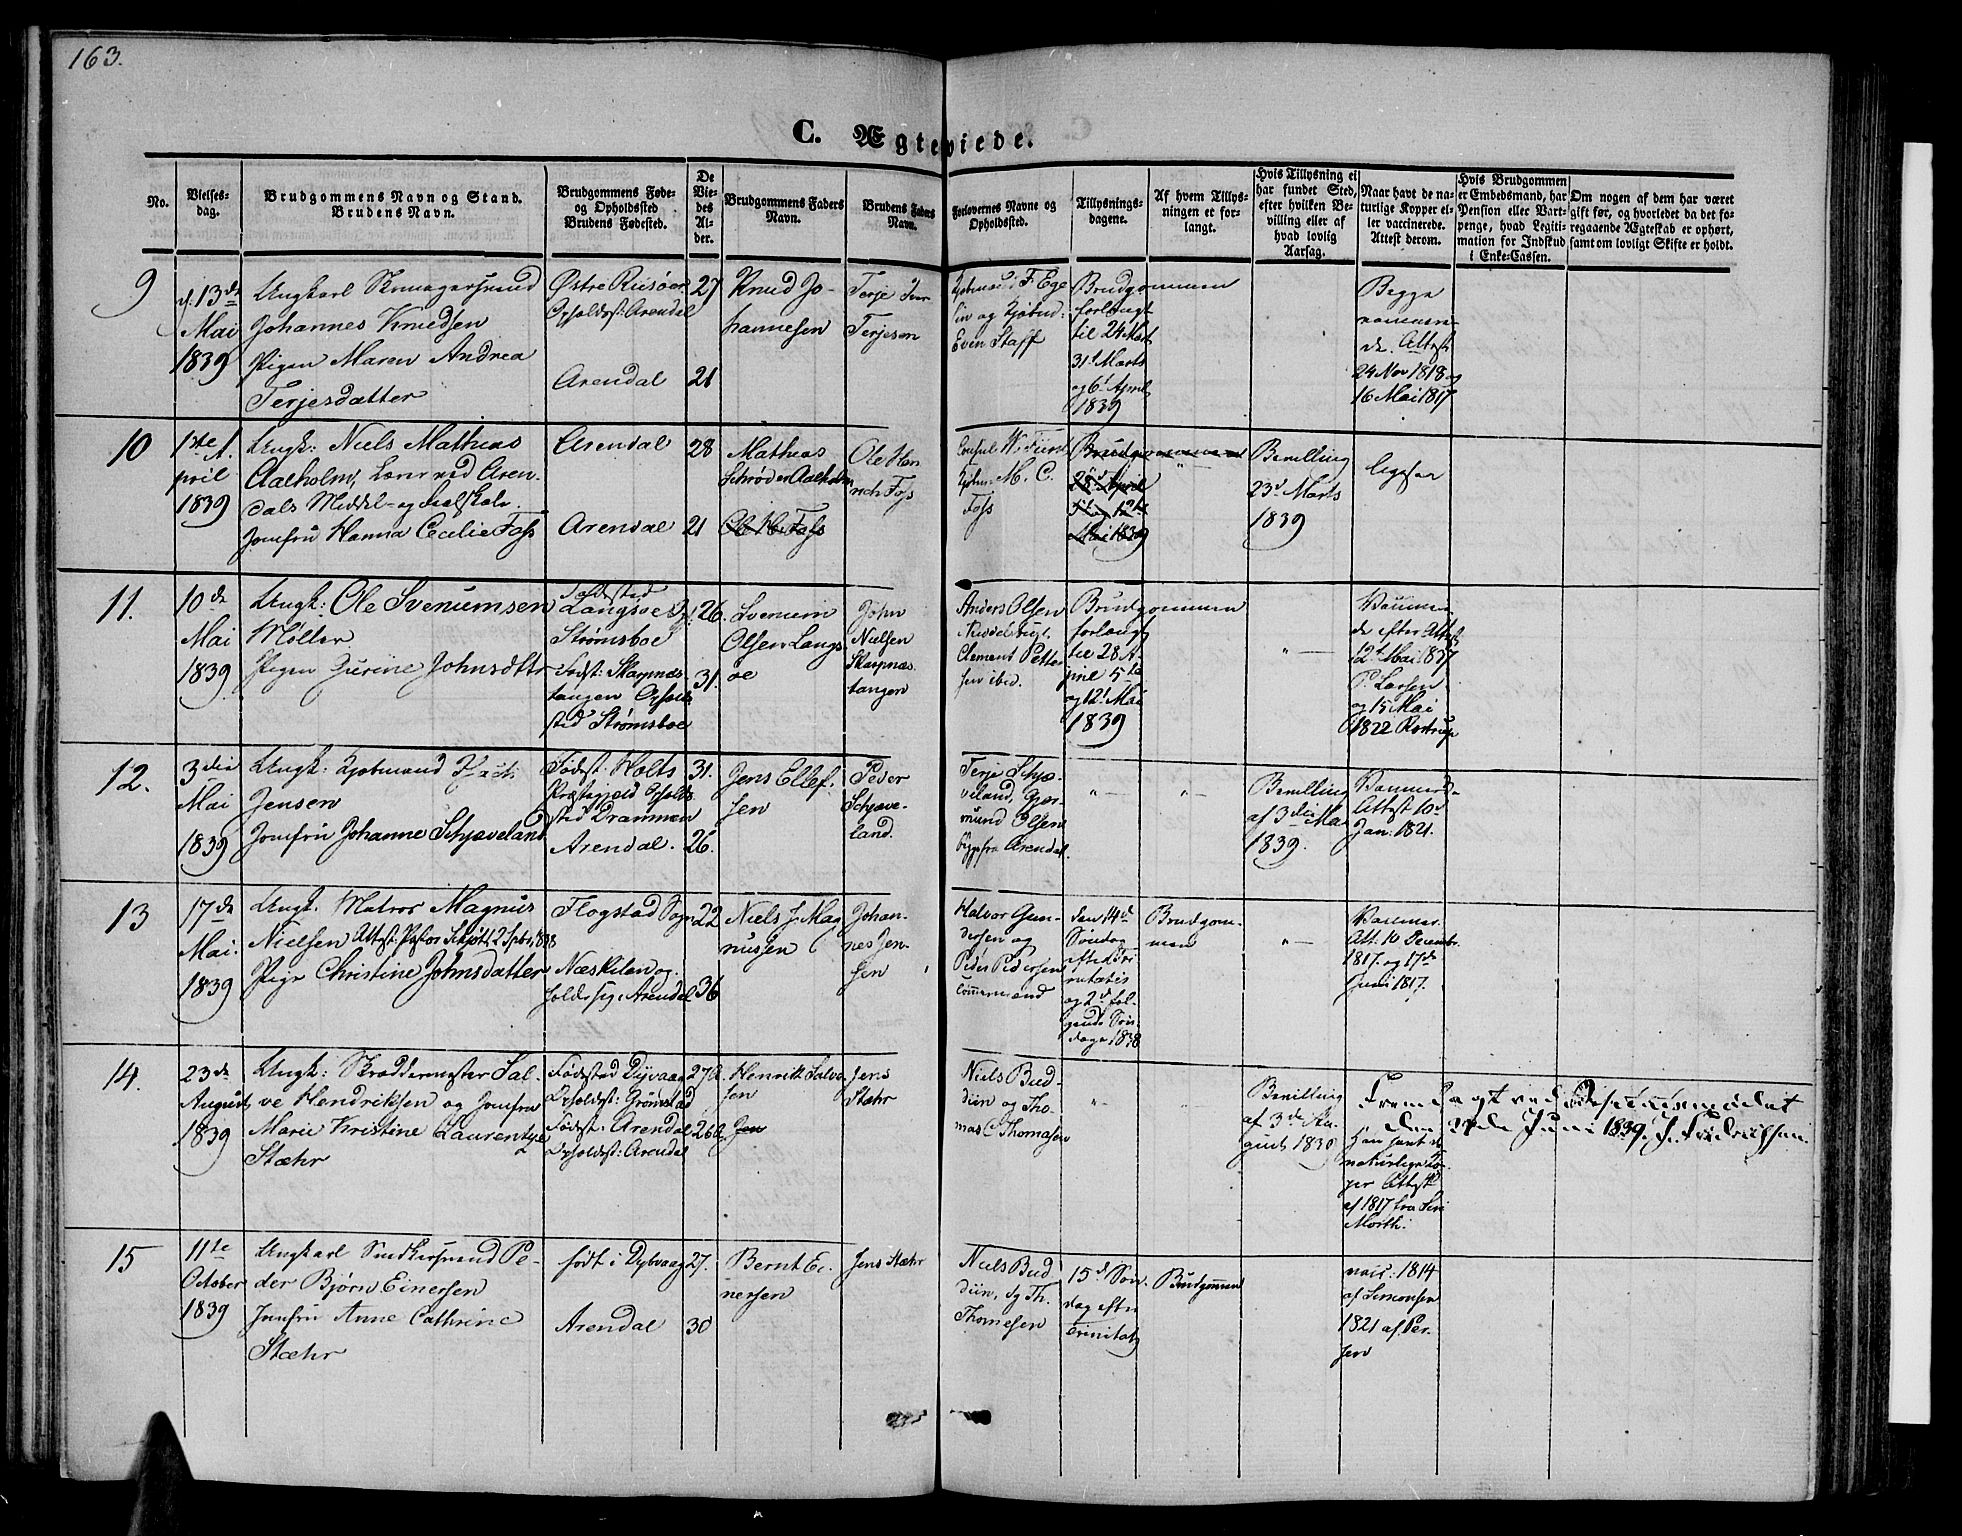 163.
C. Ægteviede.
No.
Vielses-
dag.
Brudgommens Navn og Stand.
Brudens Navn.
Brudgommens Føde-
og Opholdssted
Brudens Fødested.
De
Vie-
des
Al-
der.
Brudgommens Faders
Navn.
Brudens Faders
Navn.
Forlovernes Navne og
Opholdssted.
Tillysnings-
dagene.
Af hvem Tillys-
ningen er for-
langt.
Hvis Tillysning ei
har fundet Sted,
efter hvilken Be-
villing eller af
hvad lovlig
Aarsag.
Naar havt de na-
turlige Kopper el-
ler vaccinerede.
Attest derom.
Hvis Brudgommen
er Embedsmand, har
Pension eller Vart-
penge, hvad Legiti-
mation for Indskud
i Enke-Cassen.
Om nogen af dem har været
gift før, og hvorledet da det fo-
regaaende Ægteskab er ophørt,
samt om lovligt Skifte er holdt.
9
13de
Mai
1839
Ungkarl Skomagersvend
Johannes Knudsen
Pigen Maren Andrea
Terjesdatter
Østre Riisøer
Opholdst: Arendal
Arendal
27
21
Knud Jo-
hannesen
Terje
Terjesen
F. Ege
og
Even Staff
Brudgommen
forlangt
til 24 Mart
31t Marts
og 6t April
1839
Begge
vaccinere-
de. Attest
24 Nov 1818 og
16 Mai 1817
10
1ste A-
pril
1839
Ungk: Niels Mathias
Aalholm, Lærer ved Aren-
dals Middel- og Realskole
Jomfru Hanna Cecilie Foss
Arendal
Arendal
28
21
Mathias
Schrøder Aalholm
Ole H. Foss
Ole Hen
rich Foss
Consul
M. C.
Foss
Brudgommen
28d April
5t og 12te
Mai 1839
"
Bevilling
23d Marts
1839
ligesaa
11.
10de
Mai
1839
Ungk: Ole Svenumsen
Møller
Pigen Gurine Johnsdttr
Fødested
Langsøe Op:
Strømsboe
Fødst: Skarpnæs-
tangen Opholds
sted Strømsboe
26.
31.
Svenum
Olsen Langs
oe
John
Nielsen
Skarpnæs
tangen
Anders Olsen
Clement Petter
sen ibid.
Brudgommen
forlangt
til 28 A-
pril 5te
og 12t Mai
1839
"
Vaccinere-
de efter Attest
12t Mai 1837
P. Larsen
og 15 Mai
1822
12.
3die
Mai
1839
Ungk: Kjøbmand
Jensen
Jomfru Johanne Schjæveland
Fødest: Holts
Præstegjeld Opholds
sted Drammen
Arendal.
31.
26.
Jens Ellef-
sen
Peder
Schjæve-
land.
Terje Schjæ-
veland, Gjer-
mund Olsen
fra Arendal.
"
"
Bevilling
af 3die Mai
1839.
Vaccinered-
Attest 10d
Jan: 1821.
13
17de
Mai
1839
Ungk. Matros Magnus
Nielsen Attest: Pastor Schjøtt, 2 Sptbr. 1838
Pige Christine Johnsdatter
Flogstad Sogn
Næskilen og
Arendal
22
36
Niels J. Mag
nussen
Johan-
nes Jen-
sen
Halvor Gun-
dersen og
Peder Pedersen
Tømmermænd
den 14d
Søndag
efter Tri
nitatis
og 2d føl-
gende Søn-
dage 1838
Brudgom-
men
"
Vacciner.
Att: 10 Decembr.
1817. og 17de
Juni 1817.
14.
23de
August
1839
Ungk: Skræddermester Sal-
ve Hendriksen og Jomfru
Marie Kristine Laurentze
Stæhr
Fødested Dyvaag
Opholdst: Grømstad
Fødest: Arendal
Opholdst: Arendal
27
26
Henrik Salve
sen
Jen
Jens
Stæhr
Niels Bud
diin og Tho-
mas C Thomasen
"
"
Bevilling
af 3de Au-
gust 1839
Fremlagt ved
den Juni 1839.
Han havt de
naturlige Kop-
per Attest
af 1817 fra
Morth:
15
11te
October
1839
Ungkarl Snedkersvend Pe-
der Bjørn Einersen
Jomfru Anne Cathrine
Stæhr
født i Dybvaag
Arendal
27.
30
Bernt Ei-
nersen
Jens Stæhr
Niels Bud
diin, og Th.
Thomesen
15d Søn-
dag efter
Trinitatis
Brudgommen
vacc: 1814
af Simonsen
1821 af Per-
sen